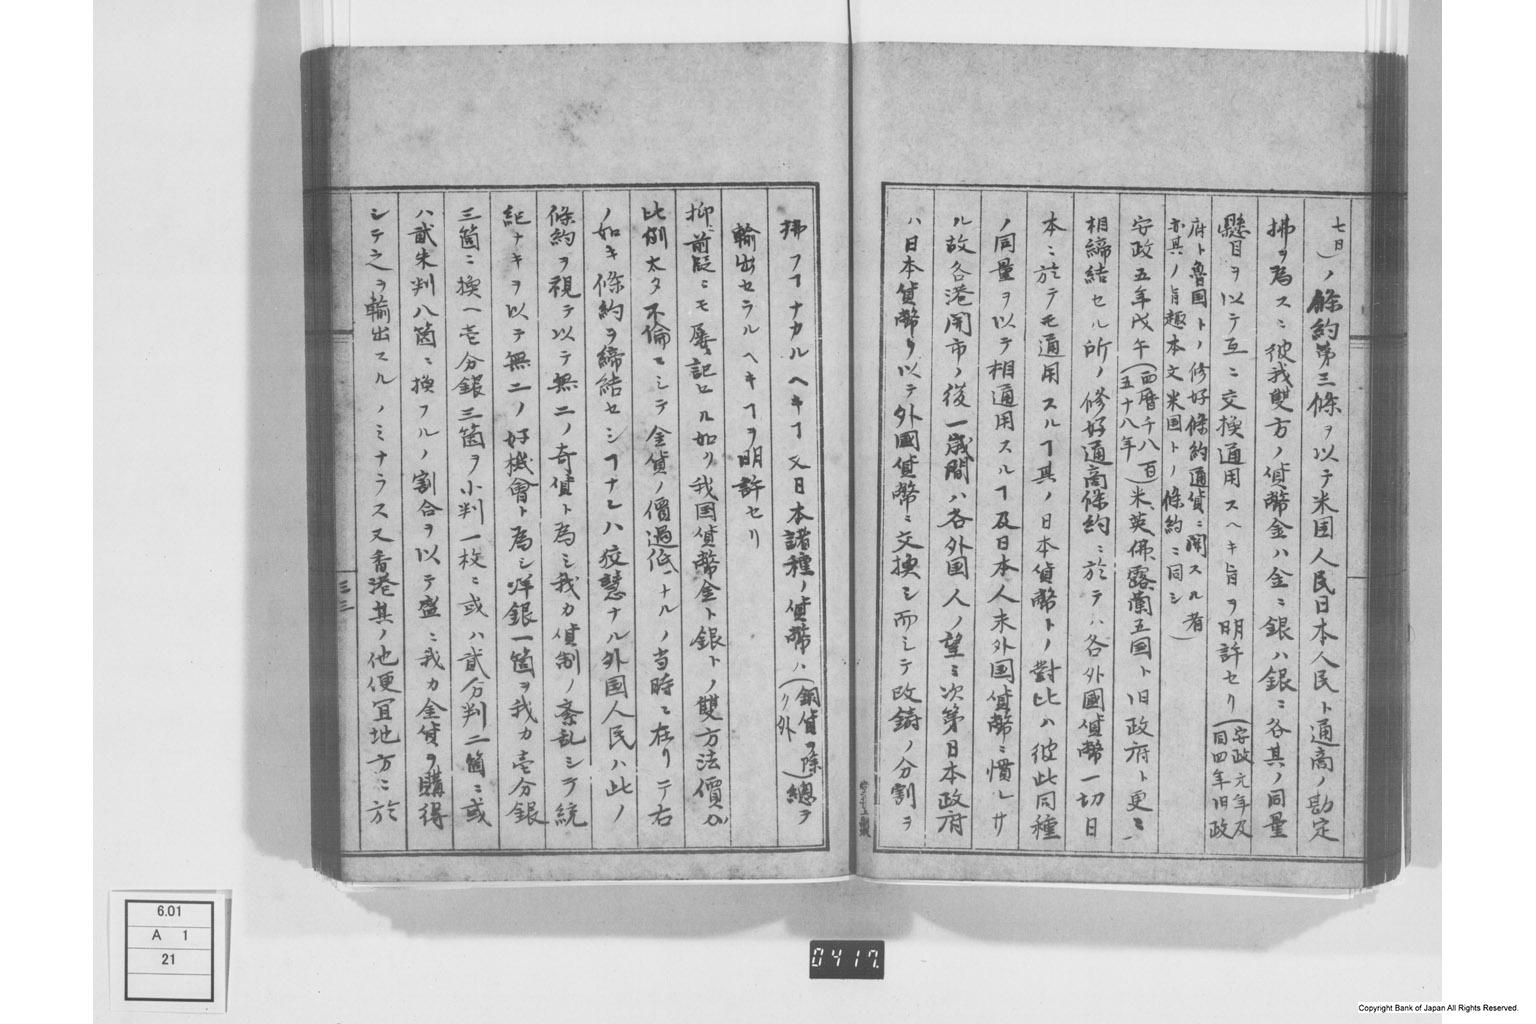 七日)ノ條約第三條ヲ以テ米国人民日本人民ト通商ノ勘定
拂ヲ為スニ彼我雙方ノ貨幣金ハ金ニ銀ハ銀ニ各其ノ同量
懸目ヲ以テ互ニ交換通用スヘキ旨ヲ明許セリ(安政元年及
同四年旧政
府ト魯国トノ修好條約通貨ニ関スル者
亦其ノ旨趣本文米国トノ條約ニ同シ)
安政五年戊午(西暦千八百
五十八年)米英佛露蘭五国ト旧政府ト更ニ
相締結セル所ノ修好通商條約ニ於テハ各外國貨幣一切日
本ニ於テモ通用スルヿ其ノ日本貨幣トノ對比ハ彼此同種
ノ同量ヲ以テ相通用スルヿ及日本人未外国貨幣ニ慣レサ
ル故各港開市ノ後一歳間ハ各外国人ノ望ミ次第日本政府
ハ日本貨幣ヲ以テ外國貨幣ニ交換シ而シテ改鋳ノ分割ヲ
拂フヿナカルヘキヿ又日本諸種ノ貨幣ハ(銅貨ヲ除
ク外)總テ
輸出セラルヘキヿヲ明許セリ
抑前段ニモ屡記セル如ク我国貨幣金ト銀トノ雙方法價ノ
比例太タ不倫ニシテ金貨ノ價過低ナルノ当時ニ在リテ右
ノ如キ條約ヲ締結セシヿナレハ狡慧ナル外国人民ハ此ノ
條約ヲ視テ以テ無二ノ奇貨ト為シ我カ貨制ノ紊乱シテ統
紀ナキヲ以テ無二ノ好機會ト為シ洋銀一箇ヲ我カ壱分銀
三箇ニ換ヘ壱分銀三箇ヲ小判一枚ニ或ハ貳分判二箇ニ或
ハ貳朱判八箇ニ換フルノ割合ヲ以テ盛ニ我カ金貨ヲ購得
シテ之ヲ輸出スルノミナラス又香港其ノ他便冝地方ニ於
三三
6.01
A 1
21
0417.
Copyright Bank of Japan All Rights Reserved.